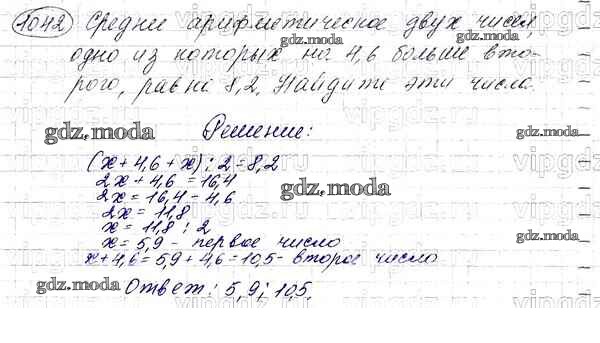 1042 Среднее арифметическое двух чисел,
одно из которых на 4,6 больше вто-
рого, равно 8,2. Найдите эти числа.
gdz.moda
Решение:
gdz.moda
(x + 4,6 + x) : 2 = 8,2
2x + 4,6 = 16,4
gdz.moda
2x = 16,4 - 4,6
2x = 11,8
x = 11,8 : 2
x = 5,9 - первое число
x + 4,6 = 5,9 + 4,6 = 10,5 - второе число
gdz.moda
gdz.moda
Ответ: 5,9; 10,5.
gdz.moda